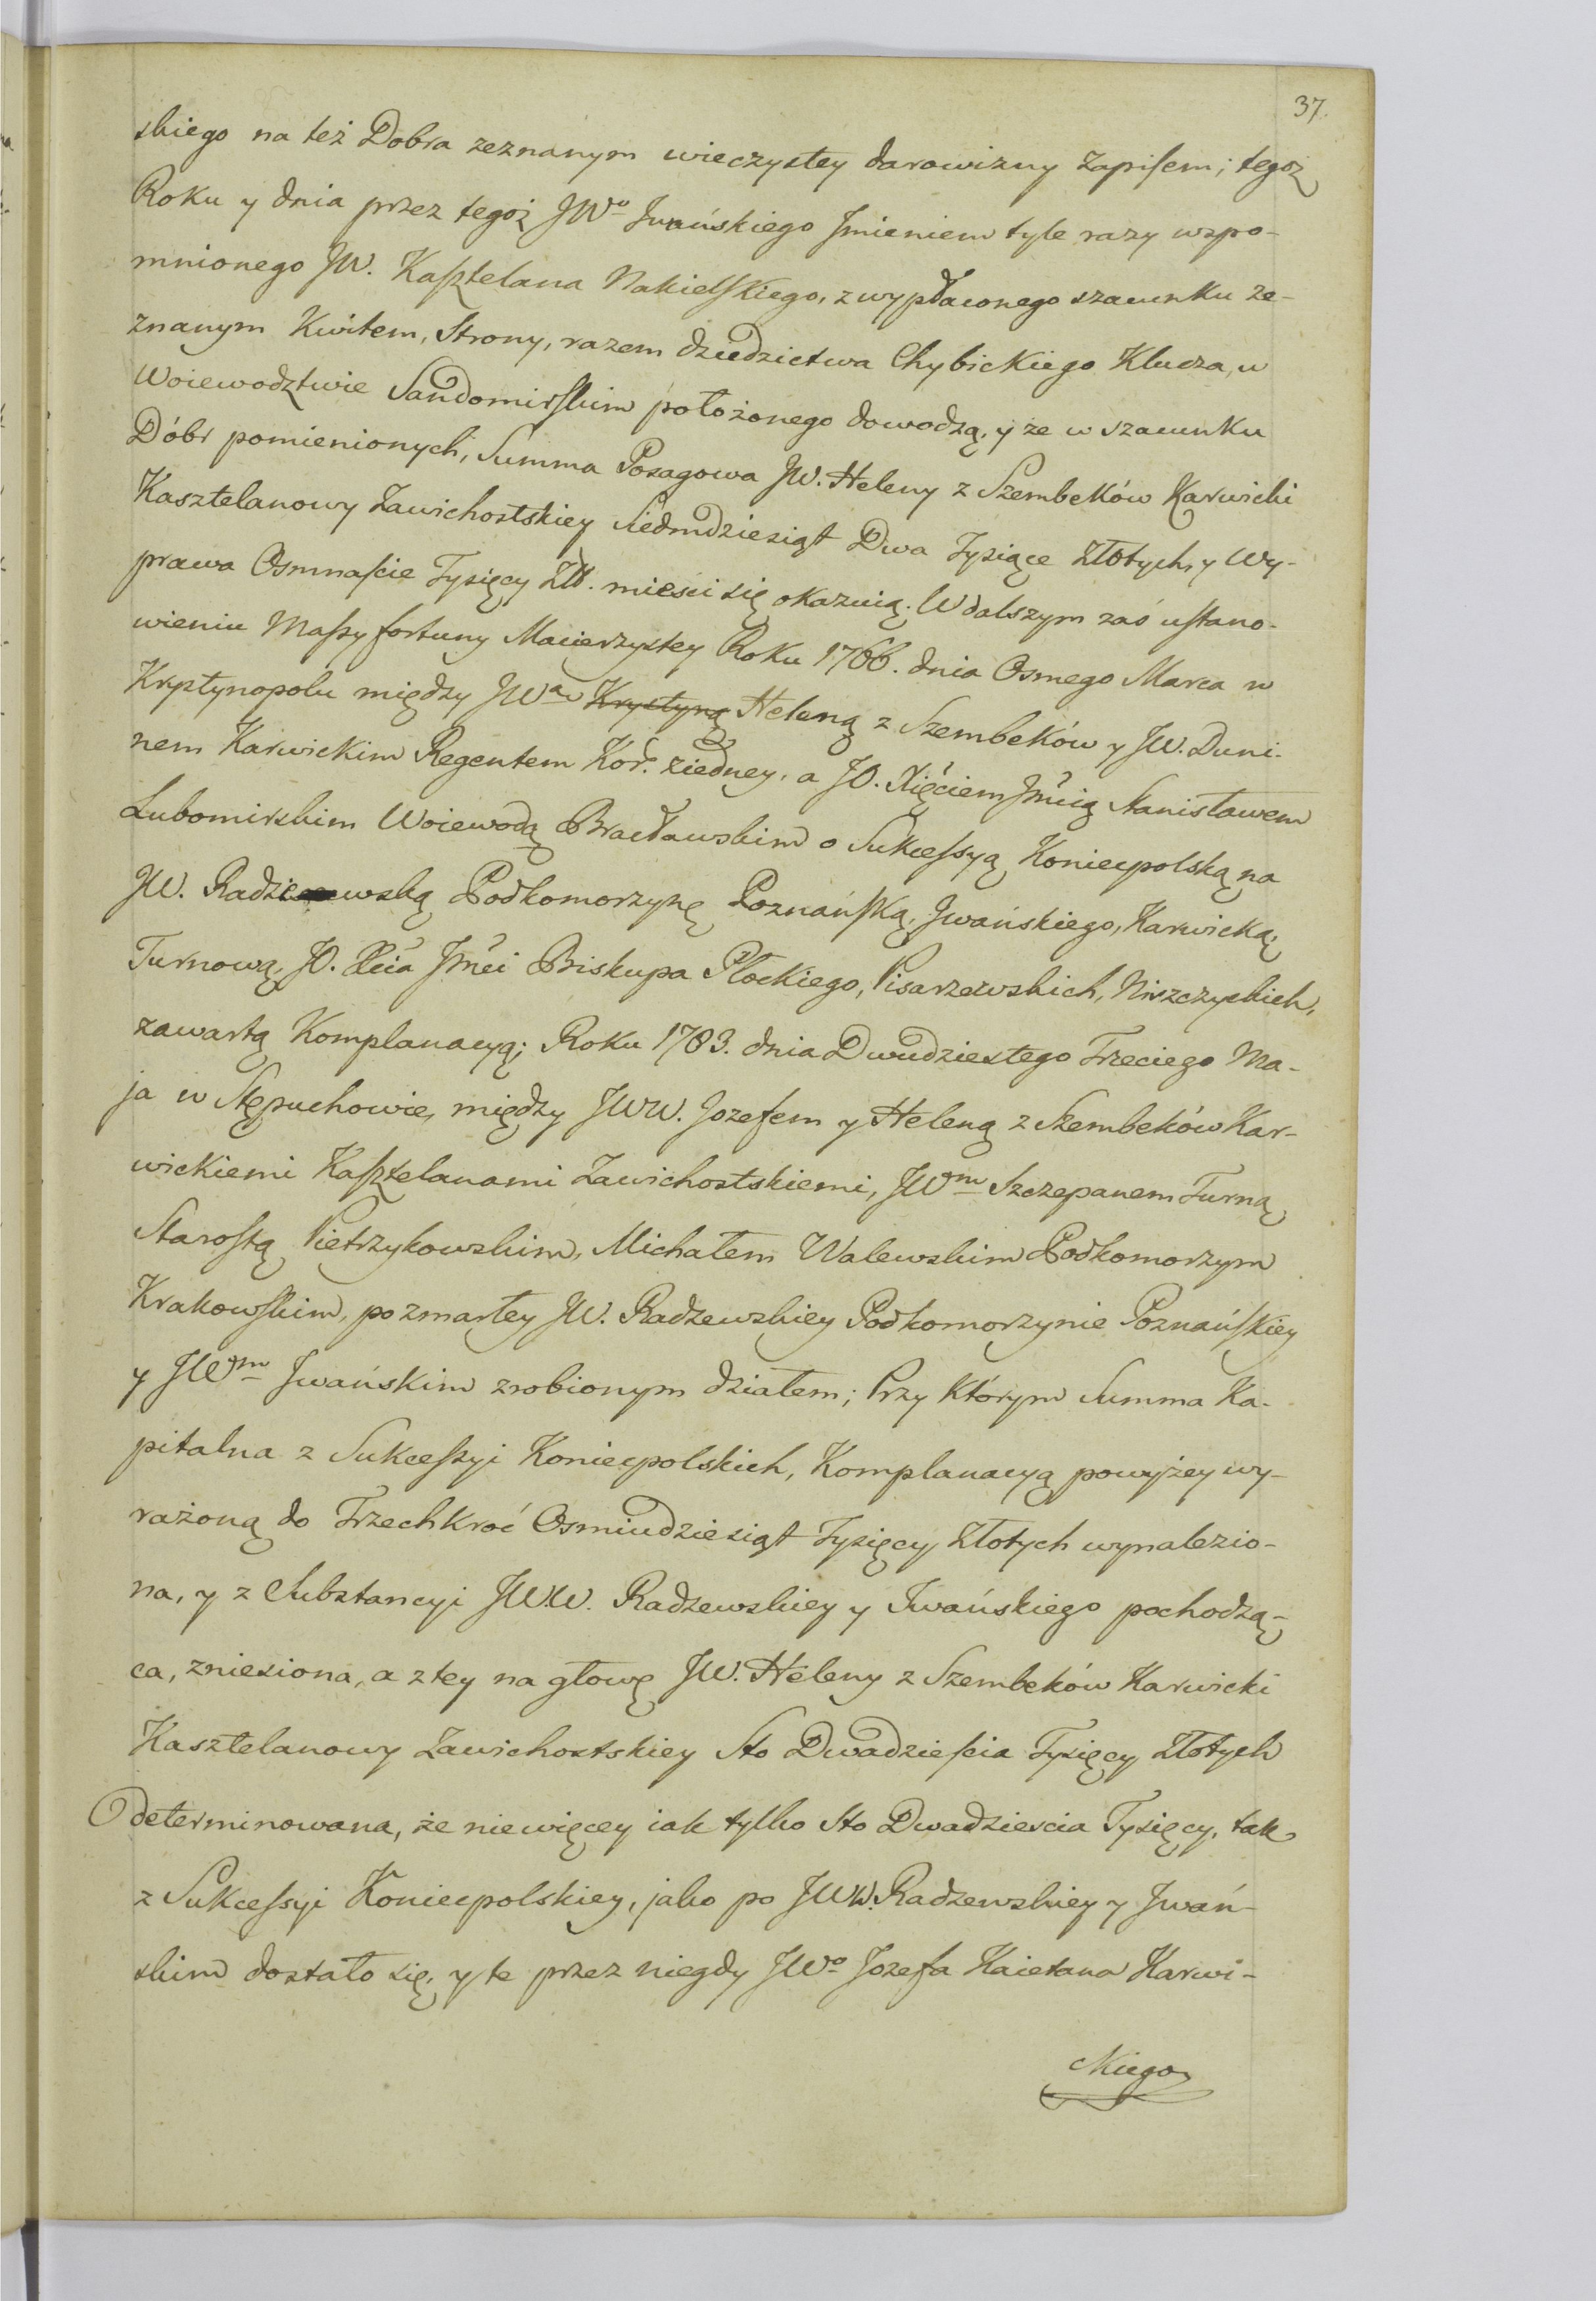 37.
skiego na też Dobra zeznanym wieczystey darowizny Zapiſem; tegoż
Roku y dnia przez tegoż JWo Jwańskiego Jmieniem tyle razy wspo-
mnionego JW. Kaſztelana Nakielſkiego, z wypłaconego szacunku ze-
znanym Kwitem, Strony, razem dziedzictwa Chybickiego Klucza, w
Woiewodztwie Sandomirſkim położonego dowodzą, y że w szacunku
Dóbr pomienionych, Summa Posagowa JW. Heleny z Szembeków Karwicki
Kasztelanowy Zawichostskiey Siedmdziesiąt Dwa Tysiące Złotych, y Wy-
prawa Osmnaſcie Tysięcy Złł. mieści się okazuią. W dalszym zaś uſtano-
wieniu Maſsy fortuny Macierzystey Roku 1766. dnia Osmego Marca w
Krystynopolu między JWą Krystyną Heleną z Szembeków y JW. Duni-
nem Karwickim Regentem Kor. ziedney, a JO. Xięciem Jmcią Stanisławem
Lubomirskim Woiewodą Bracławskim o Sukceſsyą Koniecpolską na
JW. Radzewską Podkomorzynę Poznańſką, Jwańskiego, Karwicką,
Turnową, JO. Xcia Jmci Biskupa Płockiego, Pisarzewskich, Niszczyckich,
zawartą Komplanacyą; Roku 1783. dnia Dwudziestego Trzeciego Ma-
ja w Stępuchowie, między JWW. Jozefem y Heleną z Szembeków Kar-
wickiemi Kaſztelanami Zawichostskiemi, JWm Szczepanem Turną
Staroſtą Pietrzykowskim, Michałem Walewskim Podkomorzym
Krakowſkim, po zmarłey JW. Radzewskiey Podkomorzynie Poznańſkiey
y JWm Jwańskim zrobionym działem; Przy Którym Summa Ka-
pitalna z Sukceſsyi Koniecpolskich, Komplanacyą powyżey wy-
rażoną do Trzechkroć Osmiudziesiąt Tysięcy Złotych wynalezio-
na, y z Substancyi JWW. Radzewskiey y Jwańskiego pochodzą-
ca, zniesiona, a z tey na głowę JW. Heleny z Szembeków Karwicki
Kasztelanowy Zawichostskiey Sto Dwadzieſcia Tysięcy Złotych
determinowana, że niewięcey iak tylko Sto Dwadziescia Tysięcy, tak
z Sukceſsyi Koniecpolskiey, jako po JWW. Radzewskiey y Jwań-
skim dostało się, y te przez niegdy JWo Jozefa Kaietana Karwi-
ckiego